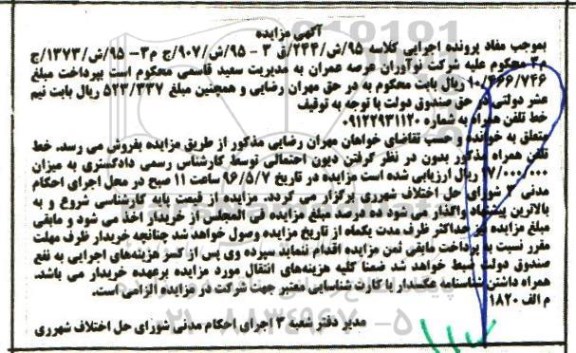 آگهی مزایده
بموجب مفاد پرونده اجرایی کلاسه ۹۵/ش/۲۴۴/ق ۳ - ۹۵/ش/۹۰۷/ج م۳- ۹۵/ش/۱۳۷۳/ج
م۳ محکوم علیه شرکت نوآوران عرصه عمران به مدیریت سعید قاسمی محکوم است بپرداخت مبلغ
۱۰/۴۶۶/۷۴۶ ریال بابت محکوم به در حق مهران رضایی و همچنین مبلغ ۵۲۳/۳۳۷ ریال بابت نیم
عشر دولتی در حق صندوق دولت با توجه به توقیف
خط تلفن همراه به شماره ۰۹۱۲۲۹۳۱۱۲۰
متعلق به خوانده و حسب تقاضای خواهان مهران رضایی مذکور از طریق مزایده بفروش می رسد. خط
تلفن همراه مذکور بدون در نظر گرفتن دیون احتمالی توسط کارشناس رسمی دادگستری به میزان
۱۷/۰۰۰/۰۰۰ ریال ارزیابی شده است مزایده در تاریخ ۹۶/۵/۷ ساعت ۱۱ صبح در محل اجرای احکام
مدنی ۳ شورای حل اختلاف شهرری برگزار می گردد. مزایده از قیمت پایه کارشناسی شروع و به
بالاترین پیشنهاد واگذار می شود ده درصد مبلغ مزایده فی المجلس از خریدار اخذ می شود و مابقی
مبلغ مزایده نیز حداکثر ظرف مدت یکماه از تاریخ مزایده وصول خواهد شد چنانچه خریدار ظرف مهلت
مقرر نسبت به پرداخت مابقی ثمن مزایده اقدام ننماید سپرده وی پس از کسر هزینه‌های اجرایی به نفع
صندوق دولت ضبط خواهد شد ضمنا کلیه هزینه‌های انتقال مورد مزایده برعهده خریدار می باشد.
همراه داشتن شناسنامه عکسدار یا کارت شناسایی معتبر جهت شرکت در مزایده الزامی است.
م الف ۱۸۲۰
مدیر دفتر شعبه ۳ اجرای احکام مدنی شورای حل اختلاف شهرری